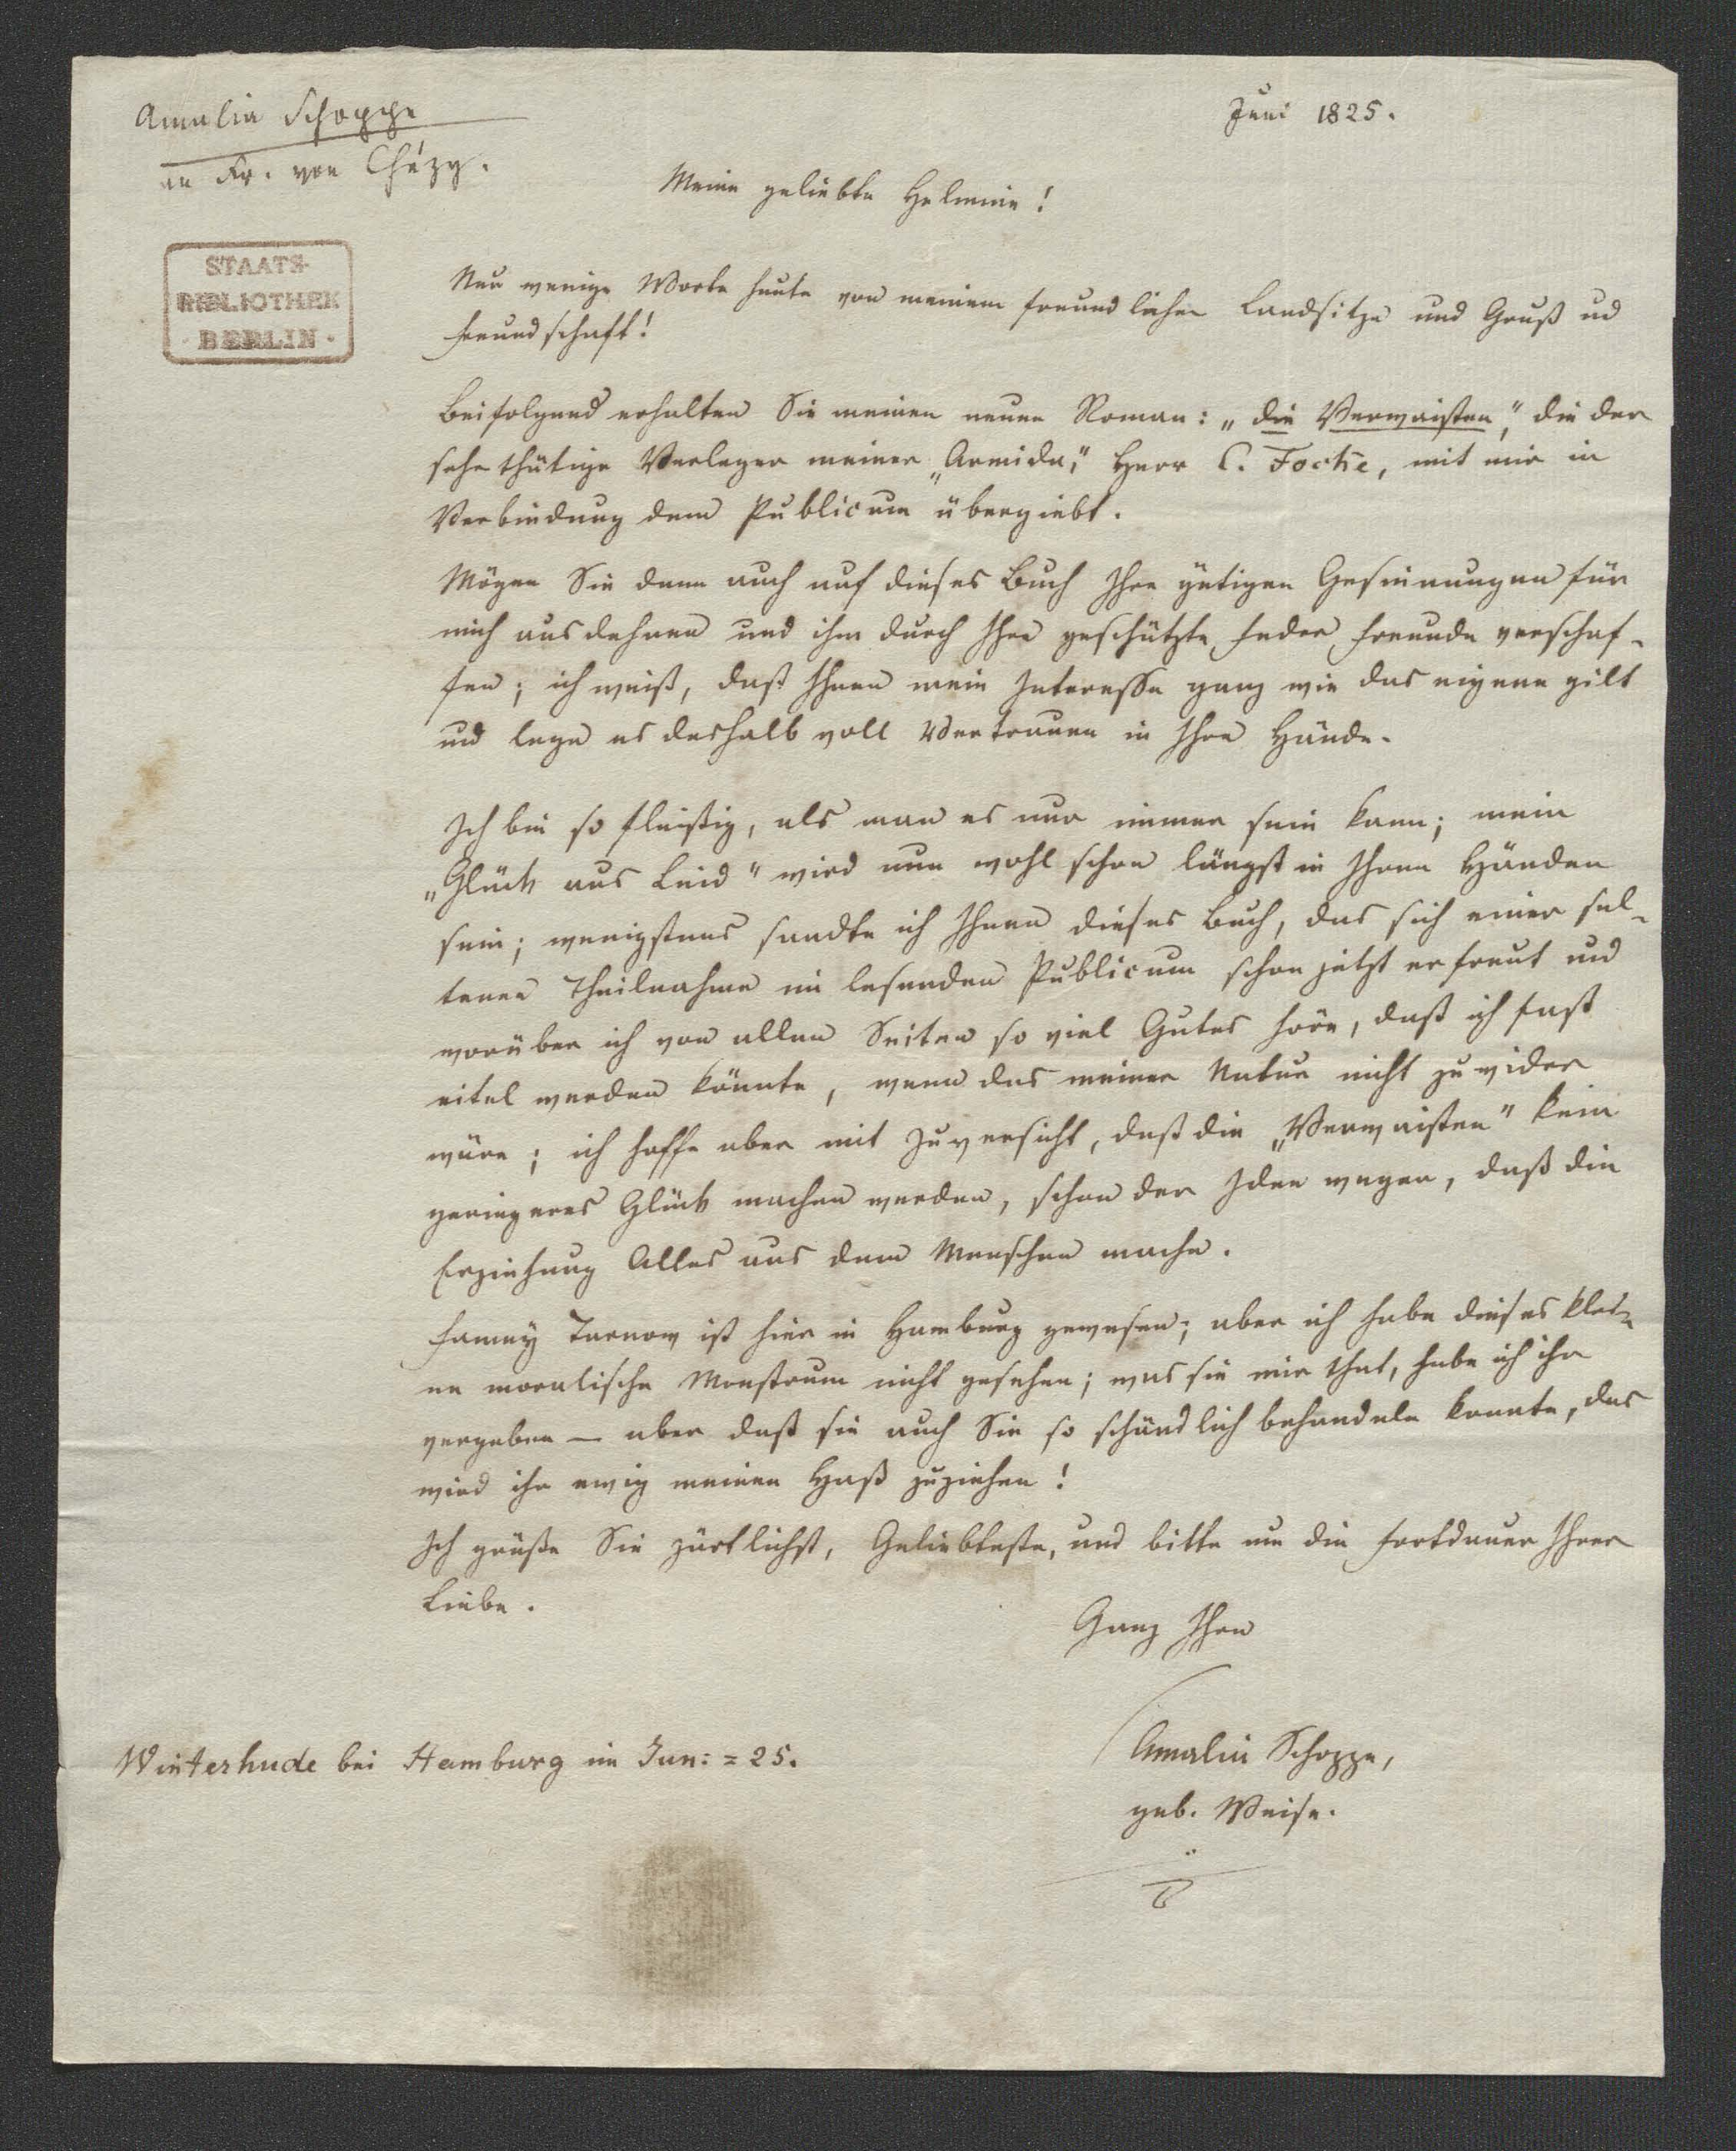 Amalia Schoppe
an Fr. von Chézy.
Juni 1825.
Meine geliebte Helmine!
STAATS-
BIBLIOTHEK
· BERLIN ·
Nur wenige Worte heute von meinem freundlichen Landsitze und Gruß ud
Freundschaft!
Beifolgend erhalten Sie meinen neuen Roman: „die Verwaisten", die der
sehr thätige Verleger meiner „Armida", Herr C. Focke, mit mir in
Verbindung dem Publicum übergiebt.
Mögen Sie denn auch auf dieses Buch Ihre gütigen Gesinnungen für
mich ausdehnen und ihm durch Ihre geschützte Feder Freunde verschaf-
fen; ich weiß, daß Ihnen mein Interesse ganz wie das eigene gilt
und lege es deshalb voll Vertrauen in Ihre Hände.
Ich bin so fleißig, als man es nur immer sein kann; mein
„Glück aus Leid" wird nun wohl schon längst in Ihren Händen
sein; wenigstens sandte ich Ihnen dieses Buch, das sich einer sel-
tenen Theilnahme im lesenden Publicum schon jetzt erfreut und
worüber ich von allen Seiten so viel Gutes höre, daß ich fast
eitel werden könnte, wenn das meiner Natur nicht zuwider
wäre; ich hoffe aber mit Zuversicht, daß die „Verwaisten" kein
geringeres Glück machen werden, schon der Idee wegen, daß die
Erziehung Alles aus dem Menschen mache.
Fanny Tarnow ist hier in Hamburg gewesen; aber ich habe dieses klei-
ne moralische Monstrum nicht gesehen; was sie mir that, habe ich ihr
vergeben — aber daß sie auch Sie so schändlich behandeln konnte, das
wird ihr ewig meinen Haß zuziehen!
Ich grüße Sie zärtlichst, Geliebteste, und bitte um die Fortdauer Ihrer
Liebe.
Ganz Ihre
Amalie Schoppe,
geb. Weise.
Winterhude bei Hamburg im Jun: = 25.